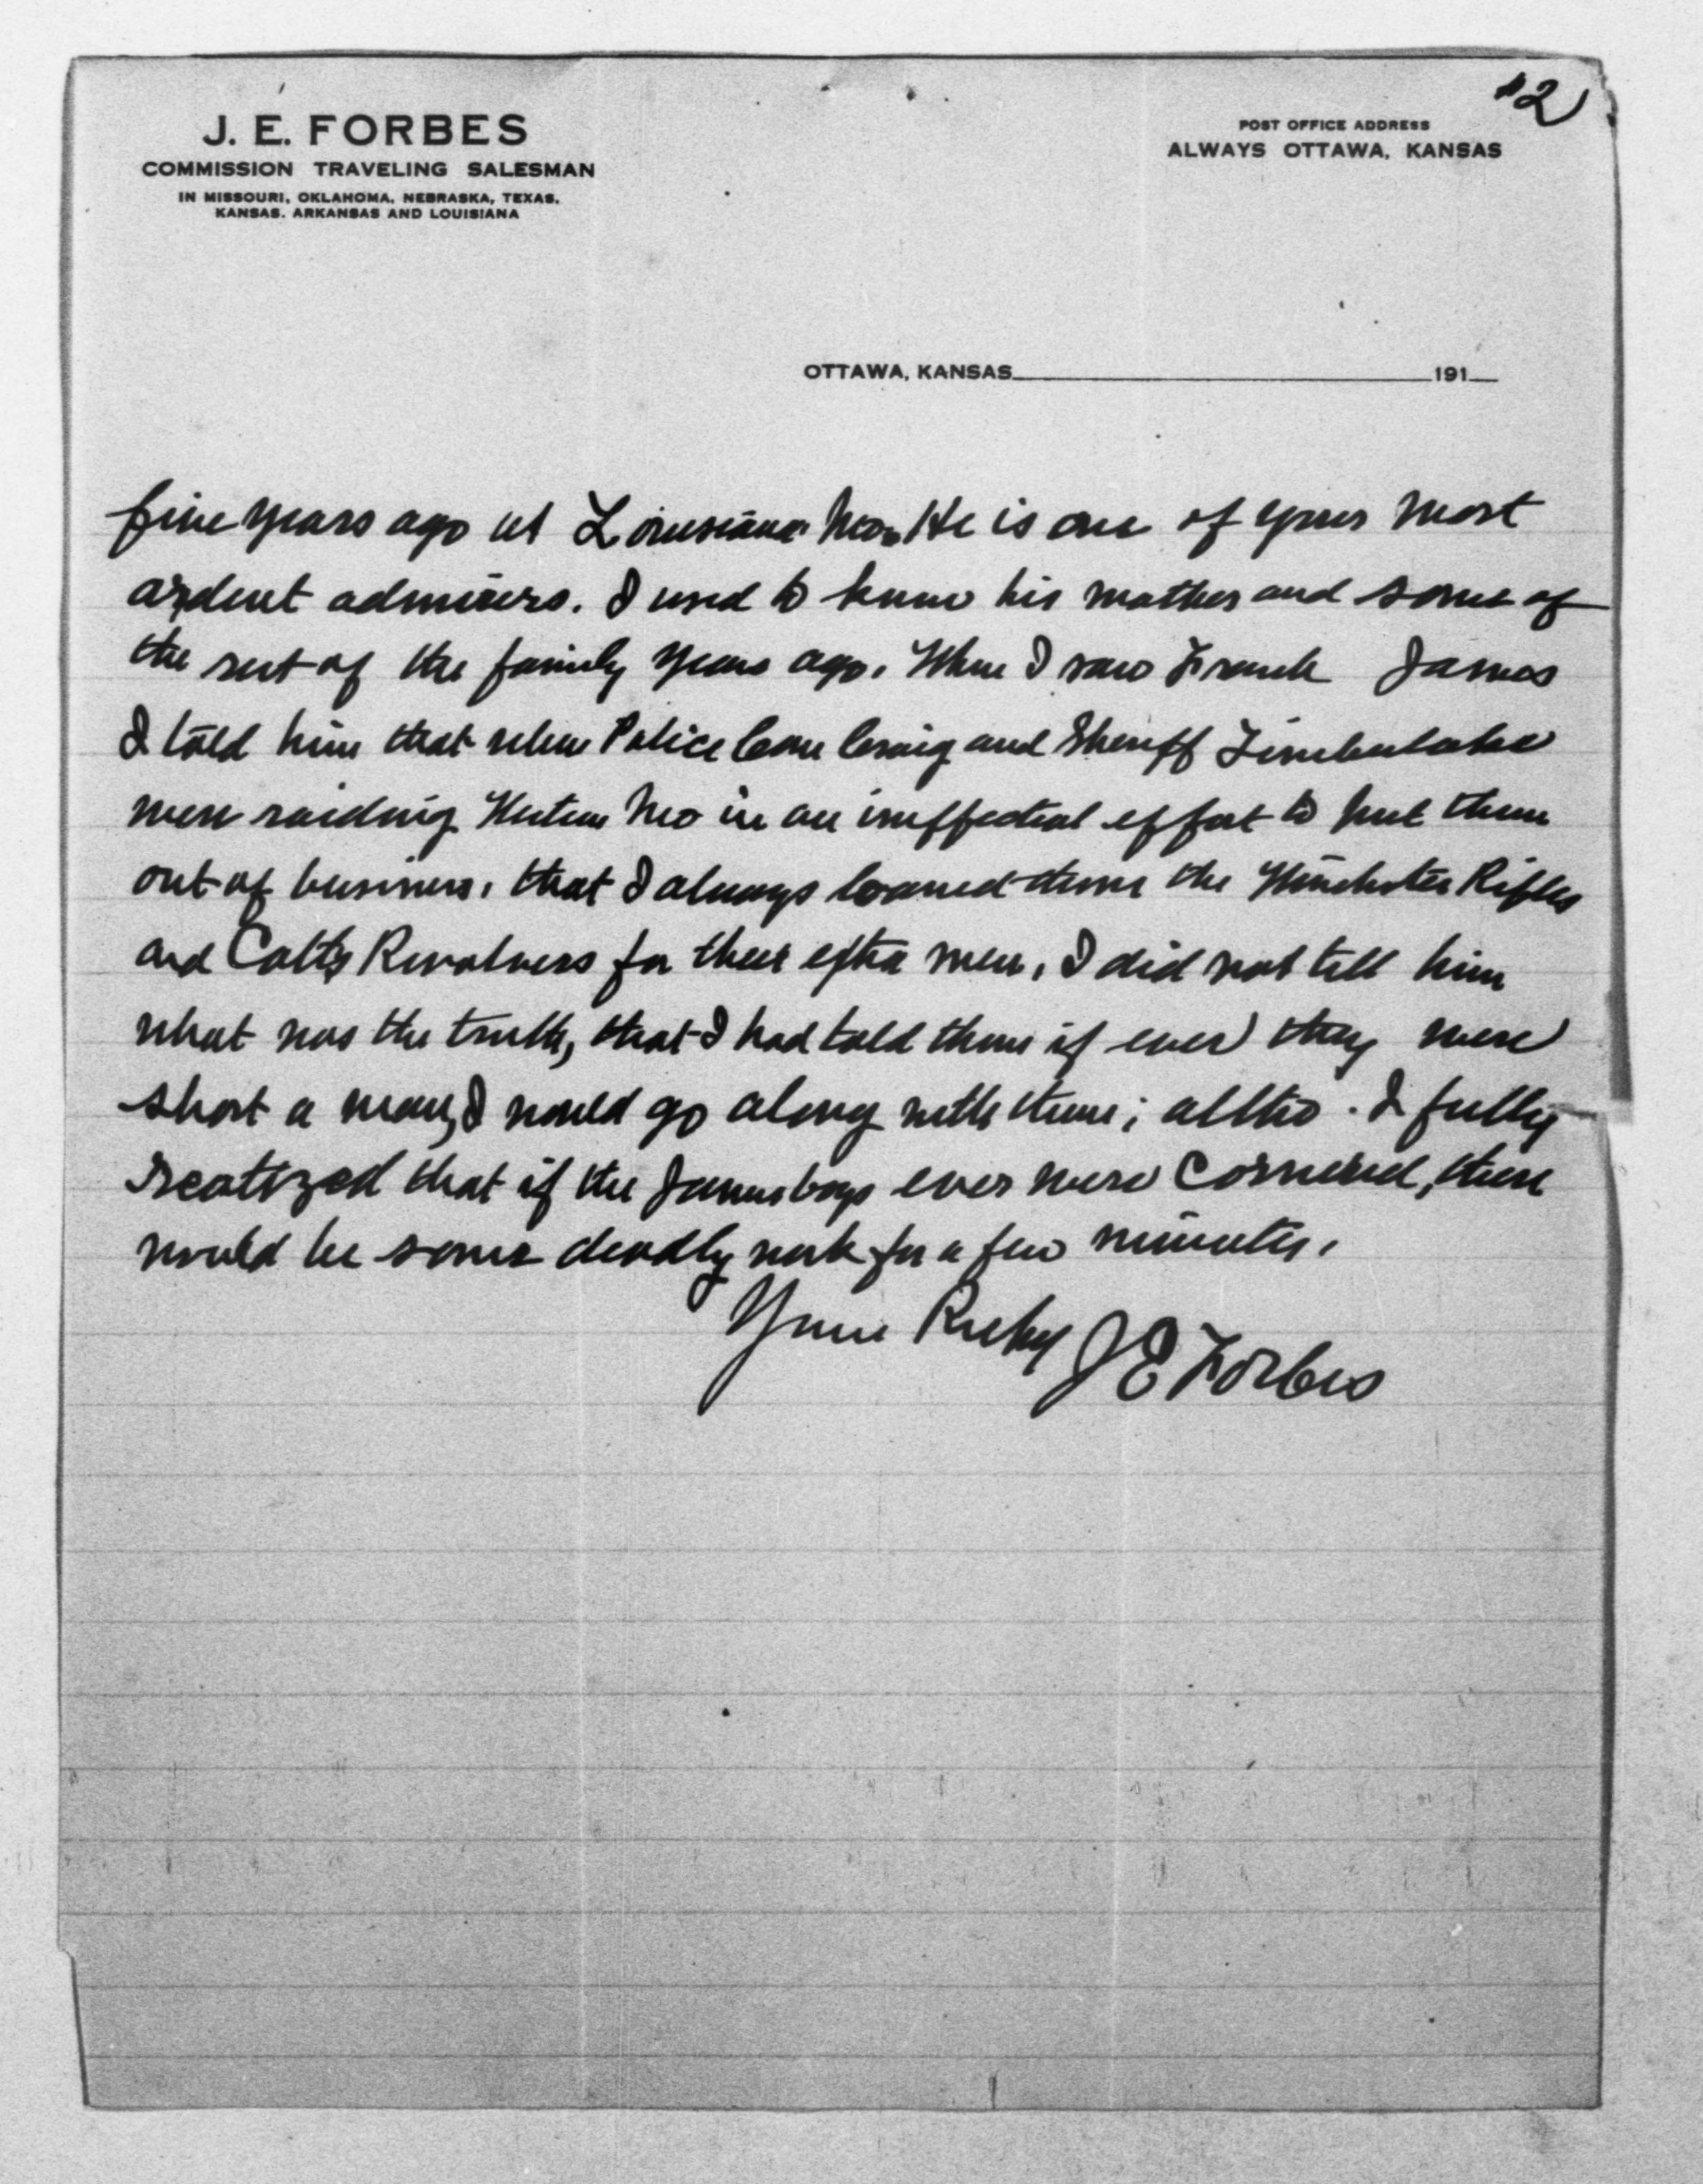 #2
J. E. FORBES
COMMISSION TRAVELING SALESMAN
IN MISSOURI, OKLAHOMA, NEBRASKA, TEXAS,
KANSAS, ARKANSAS AND LOUISIANA
POST OFFICE ADDRESS
ALWAYS OTTAWA, KANSAS
OTTAWA, KANSAS 191
five years ago at Louisiana Mo. He is one of your most
ardent admirers. I used to know his mother and some of
the rest of the family years ago. When I saw Frank James
I told him that when Police Com Craig and Sheriff Timberlake
were raiding Western Mo in an ineffectual effort to put them
out of business, that I always loaned them the Winchester Rifles
and Colts Revolvers for their extra men, I did not tell him
what was the truth, that I had told them if ever they were
short a man, I would go along with them; altho . I fully
realized that if the James boys ever were cornered, there
would be some deadly work for a few minutes.
Yours J E Forbes